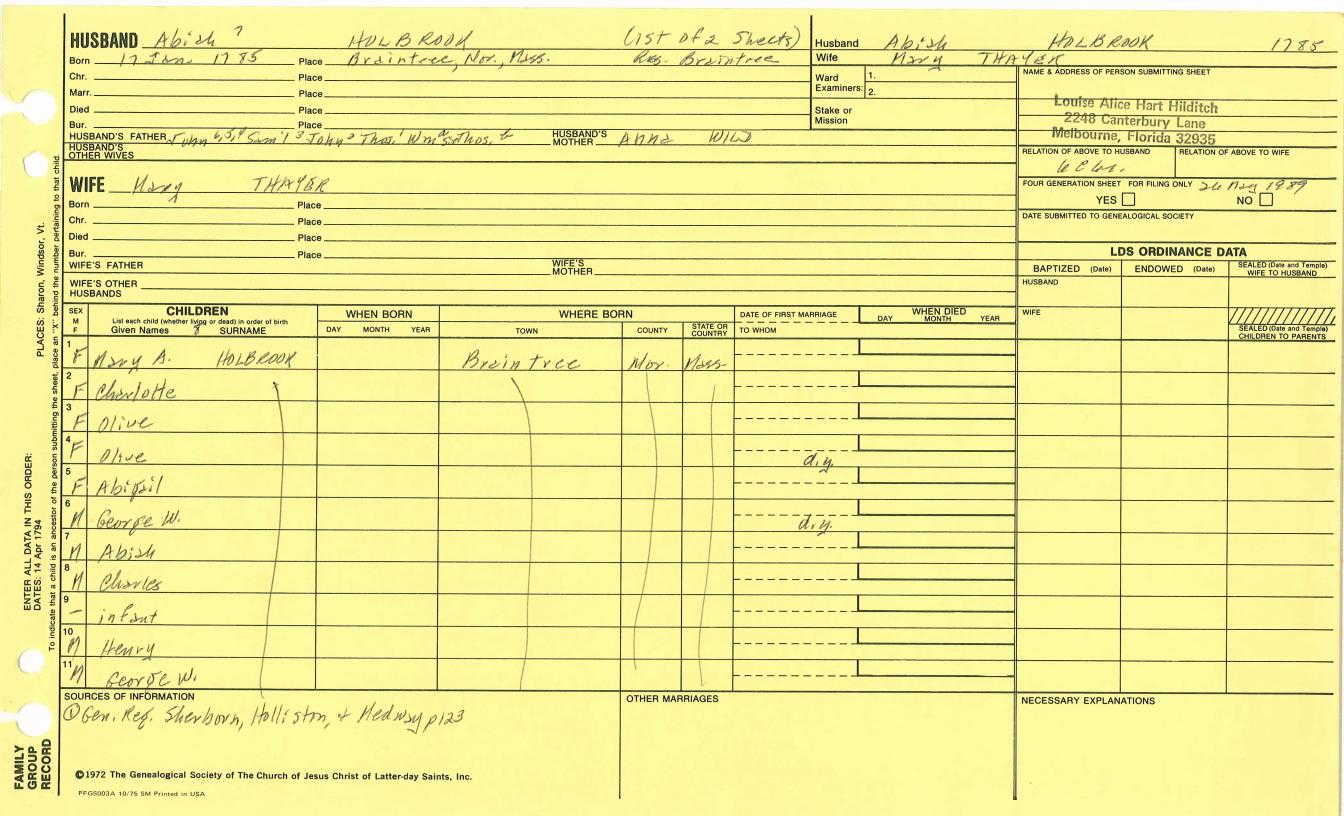 HUSBAND Abiah 7 HOLBROOK (1st of 2 Sheets)
Born 17 Jan 1785 Place Braintree, Nor., Mass. Res. Braintree
Chr. Place
Marr. Place
Died Place
Bur. Place
HUSBAND'S FATHER John 6,5,4 Sam'l 3 John 2 Thos. 1 Wm Thos. HUSBAND'S MOTHER Anna WILD
HUSBAND'S OTHER WIVES
WIFE Mary THAYER
Born Place
Chr. Place
Died Place
Bur. Place
WIFE'S FATHER WIFE'S MOTHER
WIFE'S OTHER HUSBANDS
Husband Abiah HOLBROOK 1785
Wife Mary THAYER
Ward Examiners: 1.
2.
Stake or Mission
NAME & ADDRESS OF PERSON SUBMITTING SHEET
Louise Alice Hart Hilditch
2248 Canterbury Lane
Melbourne, Florida 32935
RELATION OF ABOVE TO HUSBAND RELATION OF ABOVE TO WIFE
FOUR GENERATION SHEET FOR FILING ONLY 26 May 1989
YES NO
DATE SUBMITTED TO GENEALOGICAL SOCIETY
LDS ORDINANCE DATA
BAPTIZED (Date) ENDOWED (Date) SEALED (Date and Temple) WIFE TO HUSBAND
HUSBAND
WIFE
SEALED (Date and Temple) CHILDREN TO PARENTS
SEX M F
CHILDREN
List each child (whether living or dead) in order of birth
Given Names SURNAME
WHEN BORN
DAY MONTH YEAR
WHERE BORN
TOWN COUNTY STATE OR COUNTRY
DATE OF FIRST MARRIAGE
TO WHOM
WHEN DIED
DAY MONTH YEAR
1 F Mary A. HOLBROOK Braintree Nor. Mass
2 F Charlotte
3 F Olive
4 F Olive d.y.
5 F Abigail
6 M George W. d.y.
7 M Abiah
8 M Charles
9 – infant
10 M Henry
11 M George W.
SOURCES OF INFORMATION
① Gen. Reg. Sherborn, Holliston, + Medway p123
OTHER MARRIAGES
NECESSARY EXPLANATIONS
©1972 The Genealogical Society of The Church of Jesus Christ of Latter-day Saints, Inc.
PFGS003A 10/75 5M Printed in USA
FAMILY GROUP RECORD
ENTER ALL DATA IN THIS ORDER:
DATES: 14 Apr 1794 PLACES: Sharon, Windsor, Vt.
To indicate that a child is an ancestor of the person submitting the sheet, place an "X" behind the number pertaining to that child.